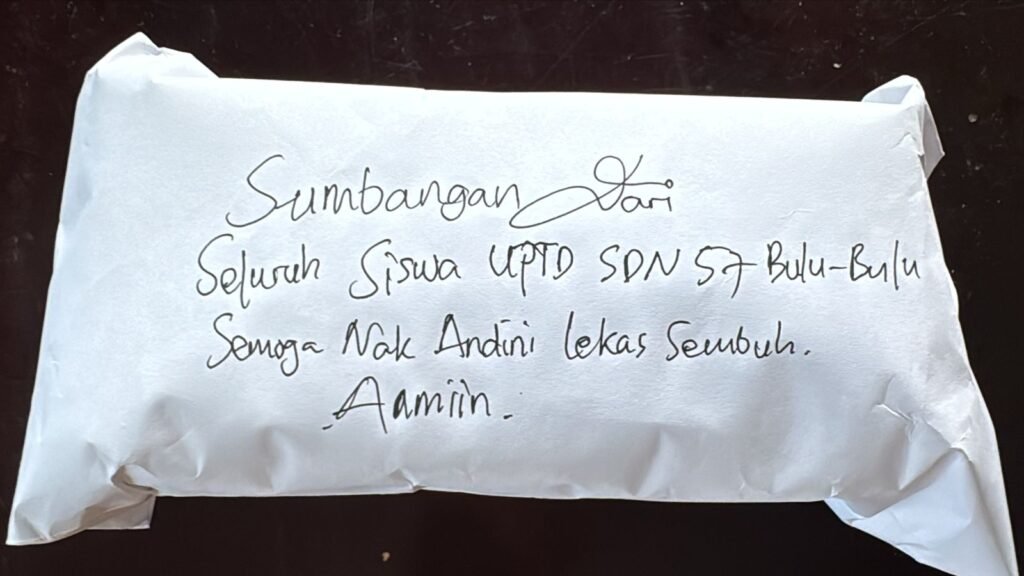 Sumbangan Dari
Seluruh Siswa UPTD SDN 57 Bulu-Bulu
Semoga Nak Andini lekas Sembuh.
Aamiin.